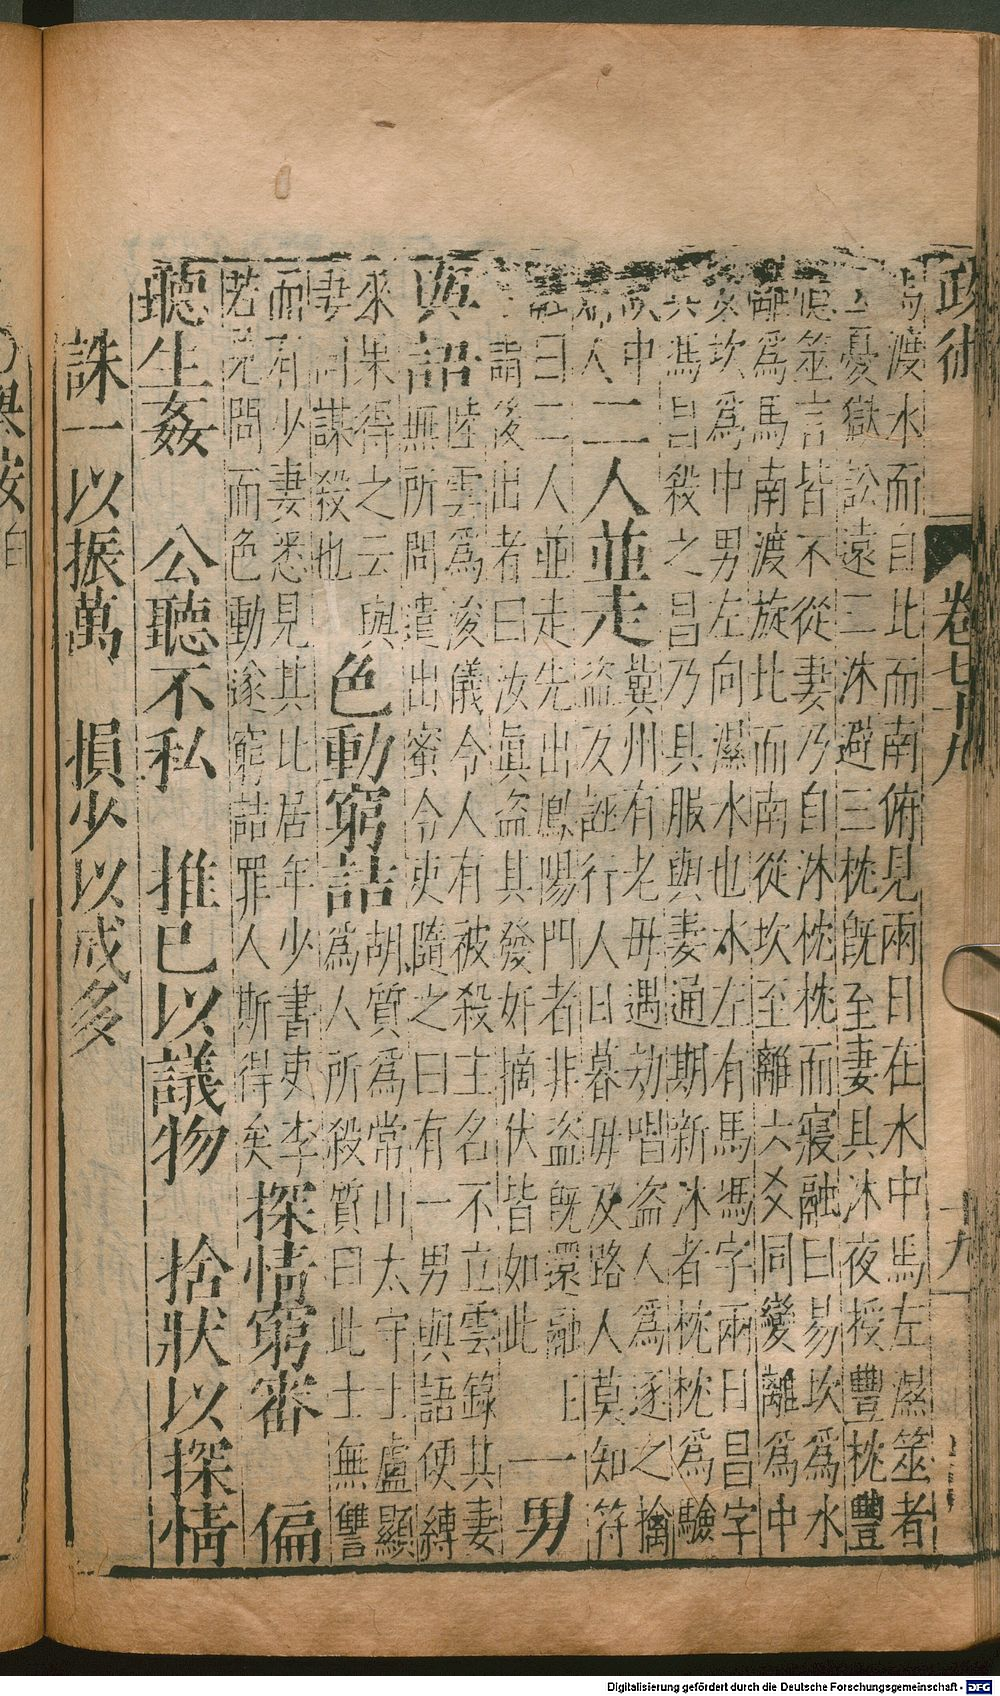 政術 卷七十九 十九
馬渡水而自北而南俯見兩日在水中馬左濕筮者
云憂獄訟遠三沐避三枕旣至妻具沐夜授豐枕豐
筮言皆不從妻乃自沐枕枕而寢融曰易坎爲水
離爲馬南渡旋北而南從坎至離六爻同變離爲中
坎爲中男左向濕水也水左有馬馮字兩日昌字
馮昌殺之昌乃具服與妻通期新沐者枕枕爲驗
中
人
二人並走
冀州有老毋遇劫唱盜人爲逐之擒
盜反誣行人日暮毋及路人莫知符
融曰二人並走先出鳳陽門者非盜旣還融正
詣後出者曰汝眞盜其發奸摘伏皆如此
一男
與語
陸雲爲浚儀令人有被殺主名不立雲錄其妻
無所問遣出蜜令吏隨之曰有一男與語便縛
來果得之云與
妻同謀殺也
色動窮詰
胡質爲常山太守士盧顯
爲人所殺質曰此士無讐
而有少妻悉見其比居年少書吏李
若見問而色動遂窮詰罪人斯得矣
探情窮審 偏
聽生姦 公聽不私 推已以議物 捨狀以探情
誅一以振萬 損少以戒多
Digitalisierung gefördert durch die Deutsche Forschungsgemeinschaft - DFG